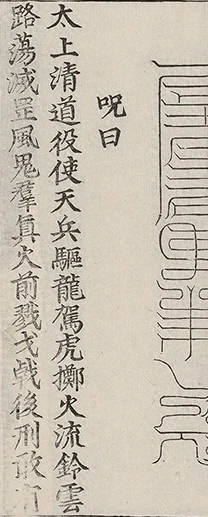 呪曰
太上清道役使天兵驅龍駕虎擲火流鈴雲
路蕩滅罡風鬼羣眞火前戮戈戟後刑敢有